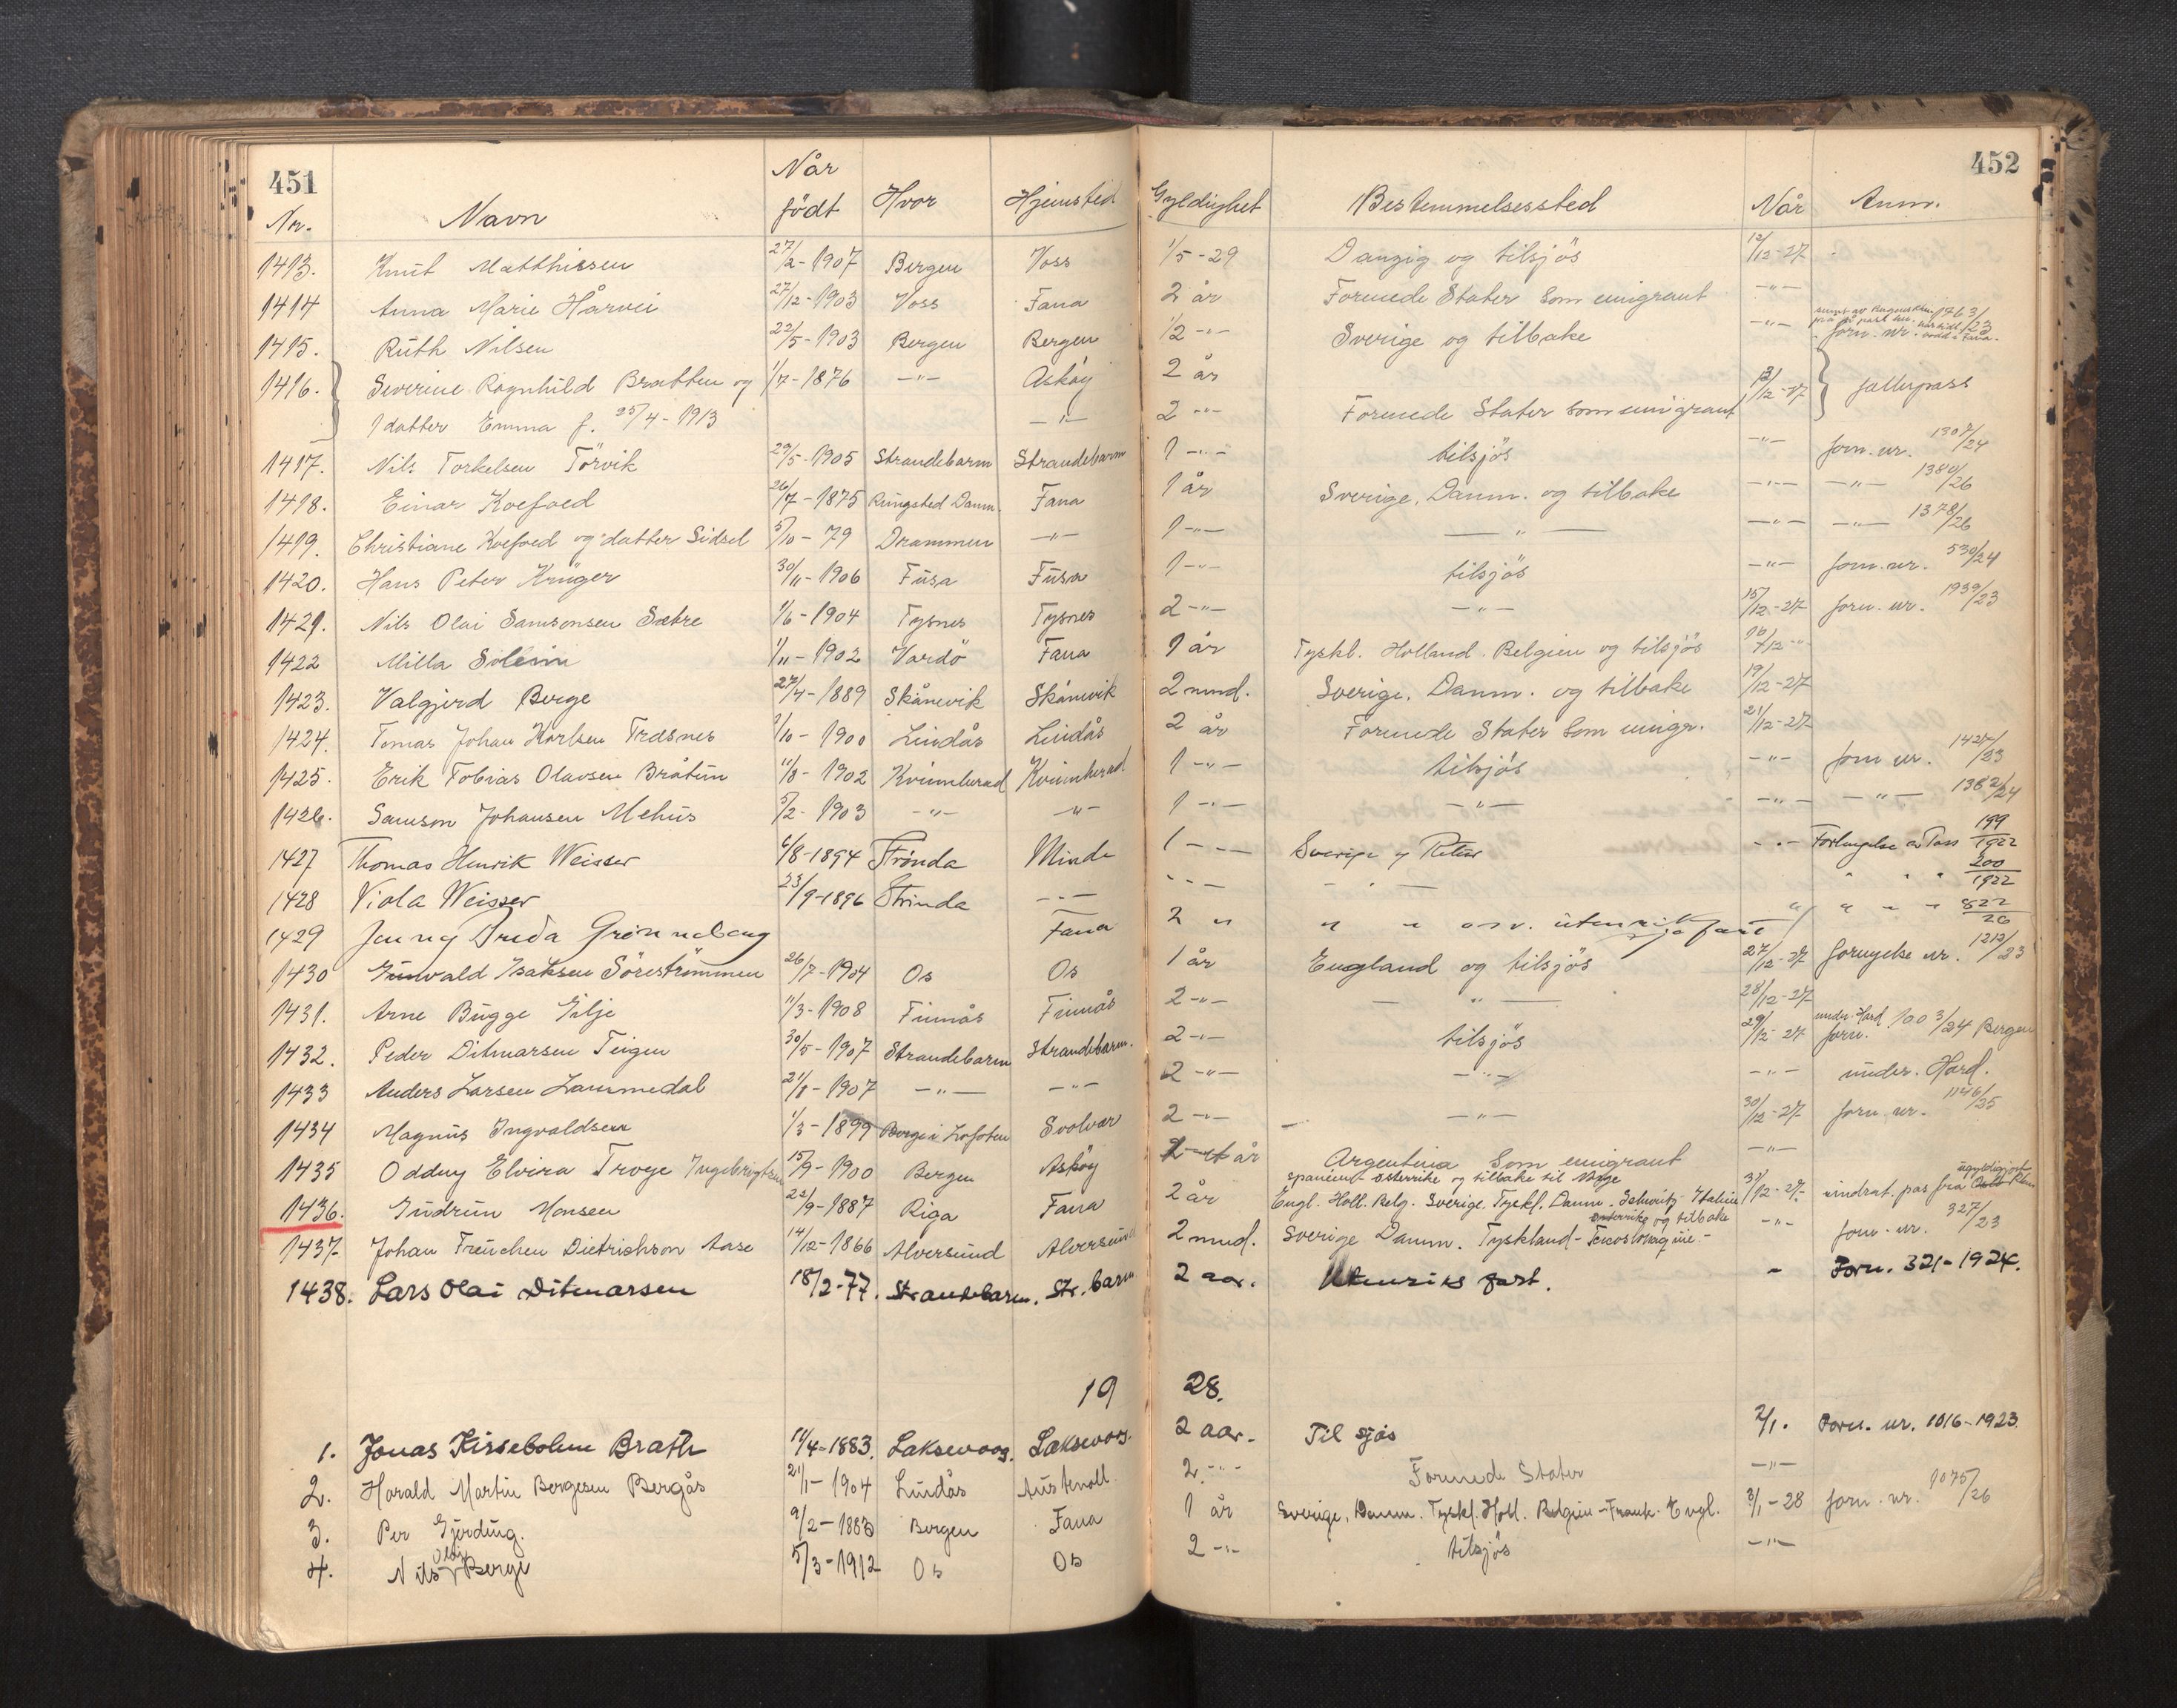 451 452
Nr. Navn Når født Hvor Hjemsted Gyldighet Bestemmelsessted Når Anm.
1413. Knut Matthissen 27/2-1907 Bergen Voss 1/5-29 Danzig og tilsjös 12/12-27
1414 Anna Marie Hårvei 27/12-1903 Voss Fana 2 år Forenede Stater som emigrant -"-
1415. Ruth Nilsen 22/5-1903 Bergen Bergen 1/2 -"- Sverige og tilbake -"- forn. nr. 1763/23
1416. Severine Ragnhild Bratten og 1/7-1876 -"- Asköy 2 år 13/12-27 fellespass
1 datter Emma f. 25/4-1913 -"- 2 -"- Forenede Stater som emigrant
1417. Nils Torkelsen Törvik 29/5-1905 Strandebarm Strandebarm 1 -"- tilsjös -"- forn. nr. 1307/24
1418. Einar Koefoed 26/7-1875 Ringsted Danm. Fana 1 år Sverige, Danm. og tilbake -"- -"- 1380/26
1419. Christiane Koefoed og datter Sidsel 5/10-79 Drammen -"- 1 -"- -"- -"- -"- 1378/26
1420. Hans Peter Krüger 30/11-1906 Fusa Fusa 1 -"- tilsjös -"- forn. nr. 530/24
1421. Nils Olai Samsonsen Sætre 1/6-1904 Tysnes Tysnes 2 -"- -"- 15/12-27 forn. nr. 1939/23
1422 Milla Soleim 1/11-1902 Vardö Fana 1 år Tyskl. Holland. Belgien og tilsjös 16/12 -"-
1423. Valgjerd Berge 27/4-1889 Skånevik Skånevik 2 mnd. Sverige, Danm. og tilbake 19/12-27
1424. Tomas Johan Karlsen Træsnes 1/10-1900 Lindås Lindås 2 år Forenede Stater som emigr. 21/12-27
1425. Erik Tobias Olavsen Bråtun 11/8-1902 Kvinnherad Kvinnherad 1 -"- tilsjös -"- forn nr. 1427/23
1426. Samson Johansen Mehus 5/2-1903 -"- -"- 1 -"- -"- -"- -"- 1382/24
1427 Thomas Henrik Weisser 6/8-1894 Strinda Minde 1 -"- Sverige og Retur -"- Forlengelse av Pass 199/1922
1428 Viola Weisser 23/9-1896 Strinda -"- -"- -"- " " " 200/1922
1429 Jenny Frida Grønneberg Fana 2 " " " osv. utenriksfart " " " " 822/26
1430 Gunvald Isaksen Sörestrømmen 26/7-1904 Os Os 1 år England og tilsjös 27/12-27 fornyelse nr. 1212/23
1431. Arne Bugge Gilje 11/3-1908 Finnås Finnås 2 -"- -"- 28/12-27
1432. Peder Ditmarsen Teigen 30/5-1907 Strandebarm Strandebarm. 2 -"- tilsjös 29/12-27 forn. under. Hard. 1003/24 Bergen
1433 Anders Larsen Lammedal 21/8-1907 -"- -"- 2 -"- -"- -"- under. Hard.
1434 Magnus Ingvaldsen 1/3-1899 Borge i Lofoten Svolvær 2 -"- -"- 30/12-27 forn. nr. 1146/25
1435 Oddny Elvira Troye Ingebrigtsen 15/9-1900 Bergen Asköy et år Argentina som emigrant -"-
1436. Gudrun Monsen 22/9-1887 Riga Fana 2 år Engl. Holl. Belg. Sverige, Tyskl. Danm. Schweitz- Italien spanien- österrike og tilbake til Norge 31/12-27- inndrat. pas fra ugyldigjort
1437. Johan Treuchen Dietrichson Aase 14/12-1866 Alversund Alversund 2 mnd. Sverige Danm. Tyskland- österrike og tilbake -"- forn. nr. 327/23
1438. Lars Olai Ditmarsen 18/2-77. Strandebarm. Str.barm. 2 aar. Utenriks fart. - Forn. 321-1924.
19 28.
1. Jonas Kirsebolum Brath 14/4-1883. Laksevaag. Laksevåg. 2 aar. Til sjøs 2/1. Forn. nr. 1016-1923
2. Harald Martin Borgesen Bergås 21/1-1904 Lindås Austevoll 2. -"- Forenede Stater -"-
3. Per Gjerding. 9/2-1883 Bergen Fana 1 år Sverige, Danm. Tyskl. Holl. Belgien - Frank. Engl. 3/1-28 forn. nr. 1075/26
4. Nils Olai Berge 5/3-1912 Os Os 2 -"- tilsjös -"-